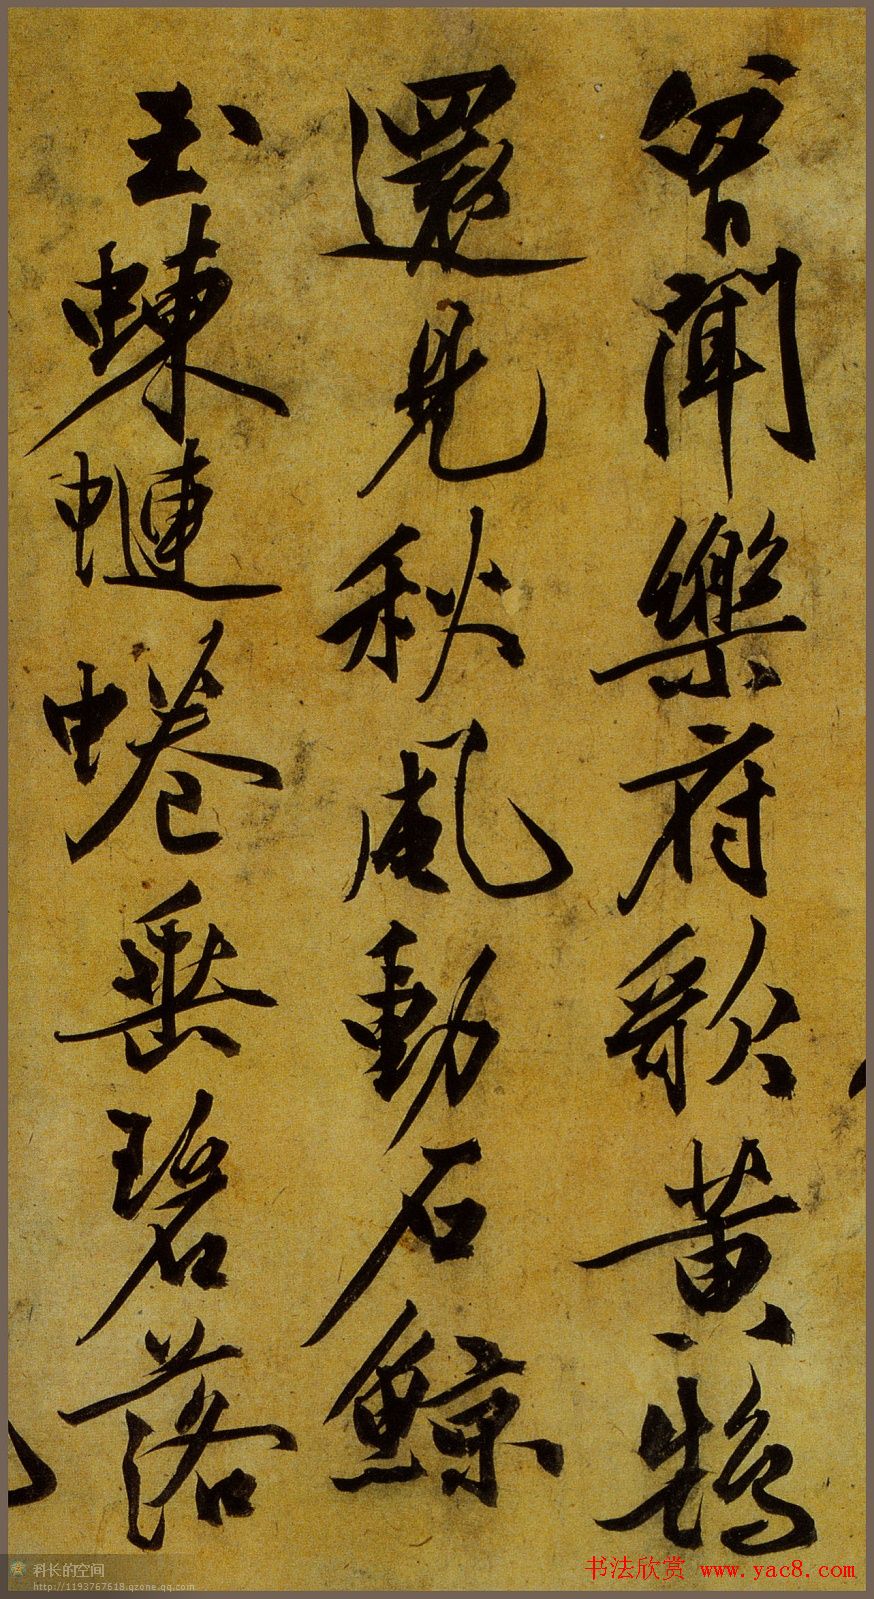 曾聞樂府歌黄鵠
還見秋風動石鯨
玉蝀𧐖蜷垂碧落
科长的空间
http://1193767618.qzone.qq.com
书法欣赏 www.yac8.com